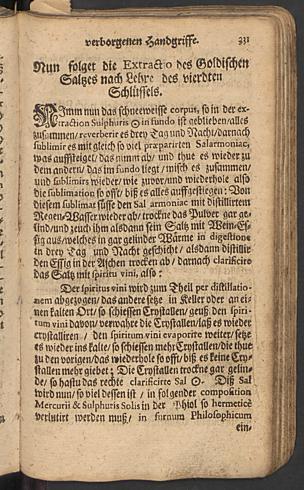 verborgenen Handgriffe. 331
Nun folget die Extractio des Goldischen
Saltzes nach Lehre des vierdten
Schlüssels.
NImm nun das schneeweisse corpus, so in der ex-
traction Sulphuris ☉ in fundo ist geblieben/alles
zusammen/reverberir es drey Tag und Nacht/darnach
sublimir es mit gleich so viel præparirten Salarmoniac,
was auffsteiget/das nimm ab/ und thue es wieder zu
dem andern/das im fundo liegt/misch es zusammen/
und sublimirs wieder/wie zuvor/und wiederhole also
die sublimation so offt/ biß es alles auffgestiegen: Von
diesem sublimat süsse den Sal armoniac mit distillirtem
Regen/Wasser wieder ab/trockne das Pulver gar ge-
lind/und zeuch ihm alsdann sein Saltz mit Wein-Es-
sig aus/welches in gar gelinder Wärme in digestione
in drey Tag und Nacht geschicht/ alsdann distillir
den Essig in der Aschen trocken ab/ darnach clarificire
das Saltz mit spiritu vini, also:
Der spiritus vini wird zum Theil per distillatio-
nem abgezogen/das andere setze in Keller oder an ei-
nen kalten Ort/so schiessen Crystallen/geuß den spiri-
tum vini davon/verwahre die Crystallen/laß es wieder
crystalliren / den spiritum vini evaporire weiter/setze
es wieder ins kalte/so schiessen mehr Crystallen/die thue
zu den vorigen/das wiederhole so offt/biß es keine Cry-
stallen mehr giebet; Die Crystallen trockne gar gelin-
de/ so hastu das rechte clarificirte Sal ☉. Diß Sal
wird nun/ so viel dessen ist/ in folgender composition
Mercurii & Sulphuris Solis in der Phiol so hermeticè
verlutirt werden muß/ in furnum Philosophicum
ein-